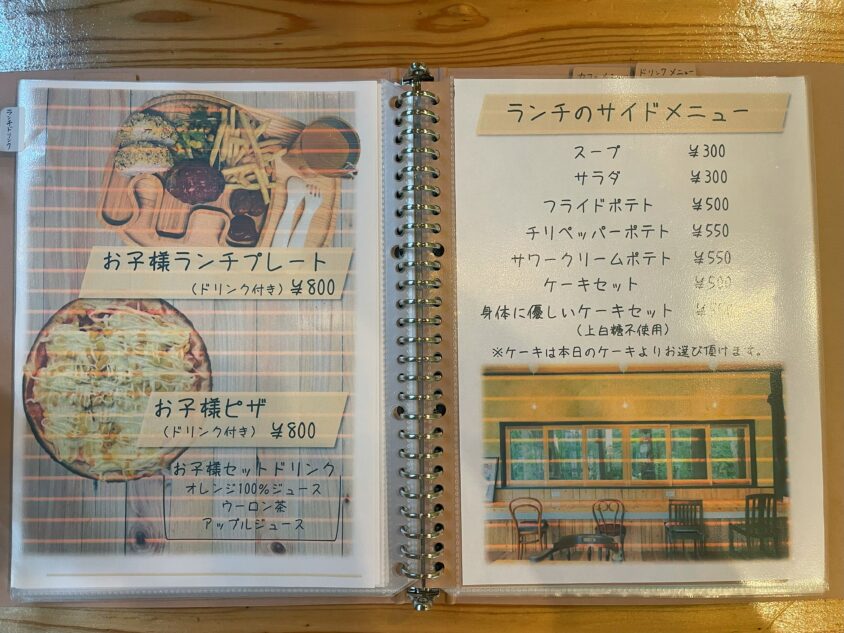 ランチドリンク
お子様ランチプレート
(ドリンク付き) ¥800
お子様ピザ
(ドリンク付き) ¥800
お子様セットドリンク
オレンジ100%ジュース
ウーロン茶
アップルジュース
ドリンクメニュー
ランチのサイドメニュー
スープ ¥300
サラダ ¥300
フライドポテト ¥500
チリペッパーポテト ¥550
サワークリームポテト ¥550
ケーキセット ¥500
身体に優しいケーキセット
(上白糖不使用)
※ケーキは本日のケーキよりお選び頂けます。